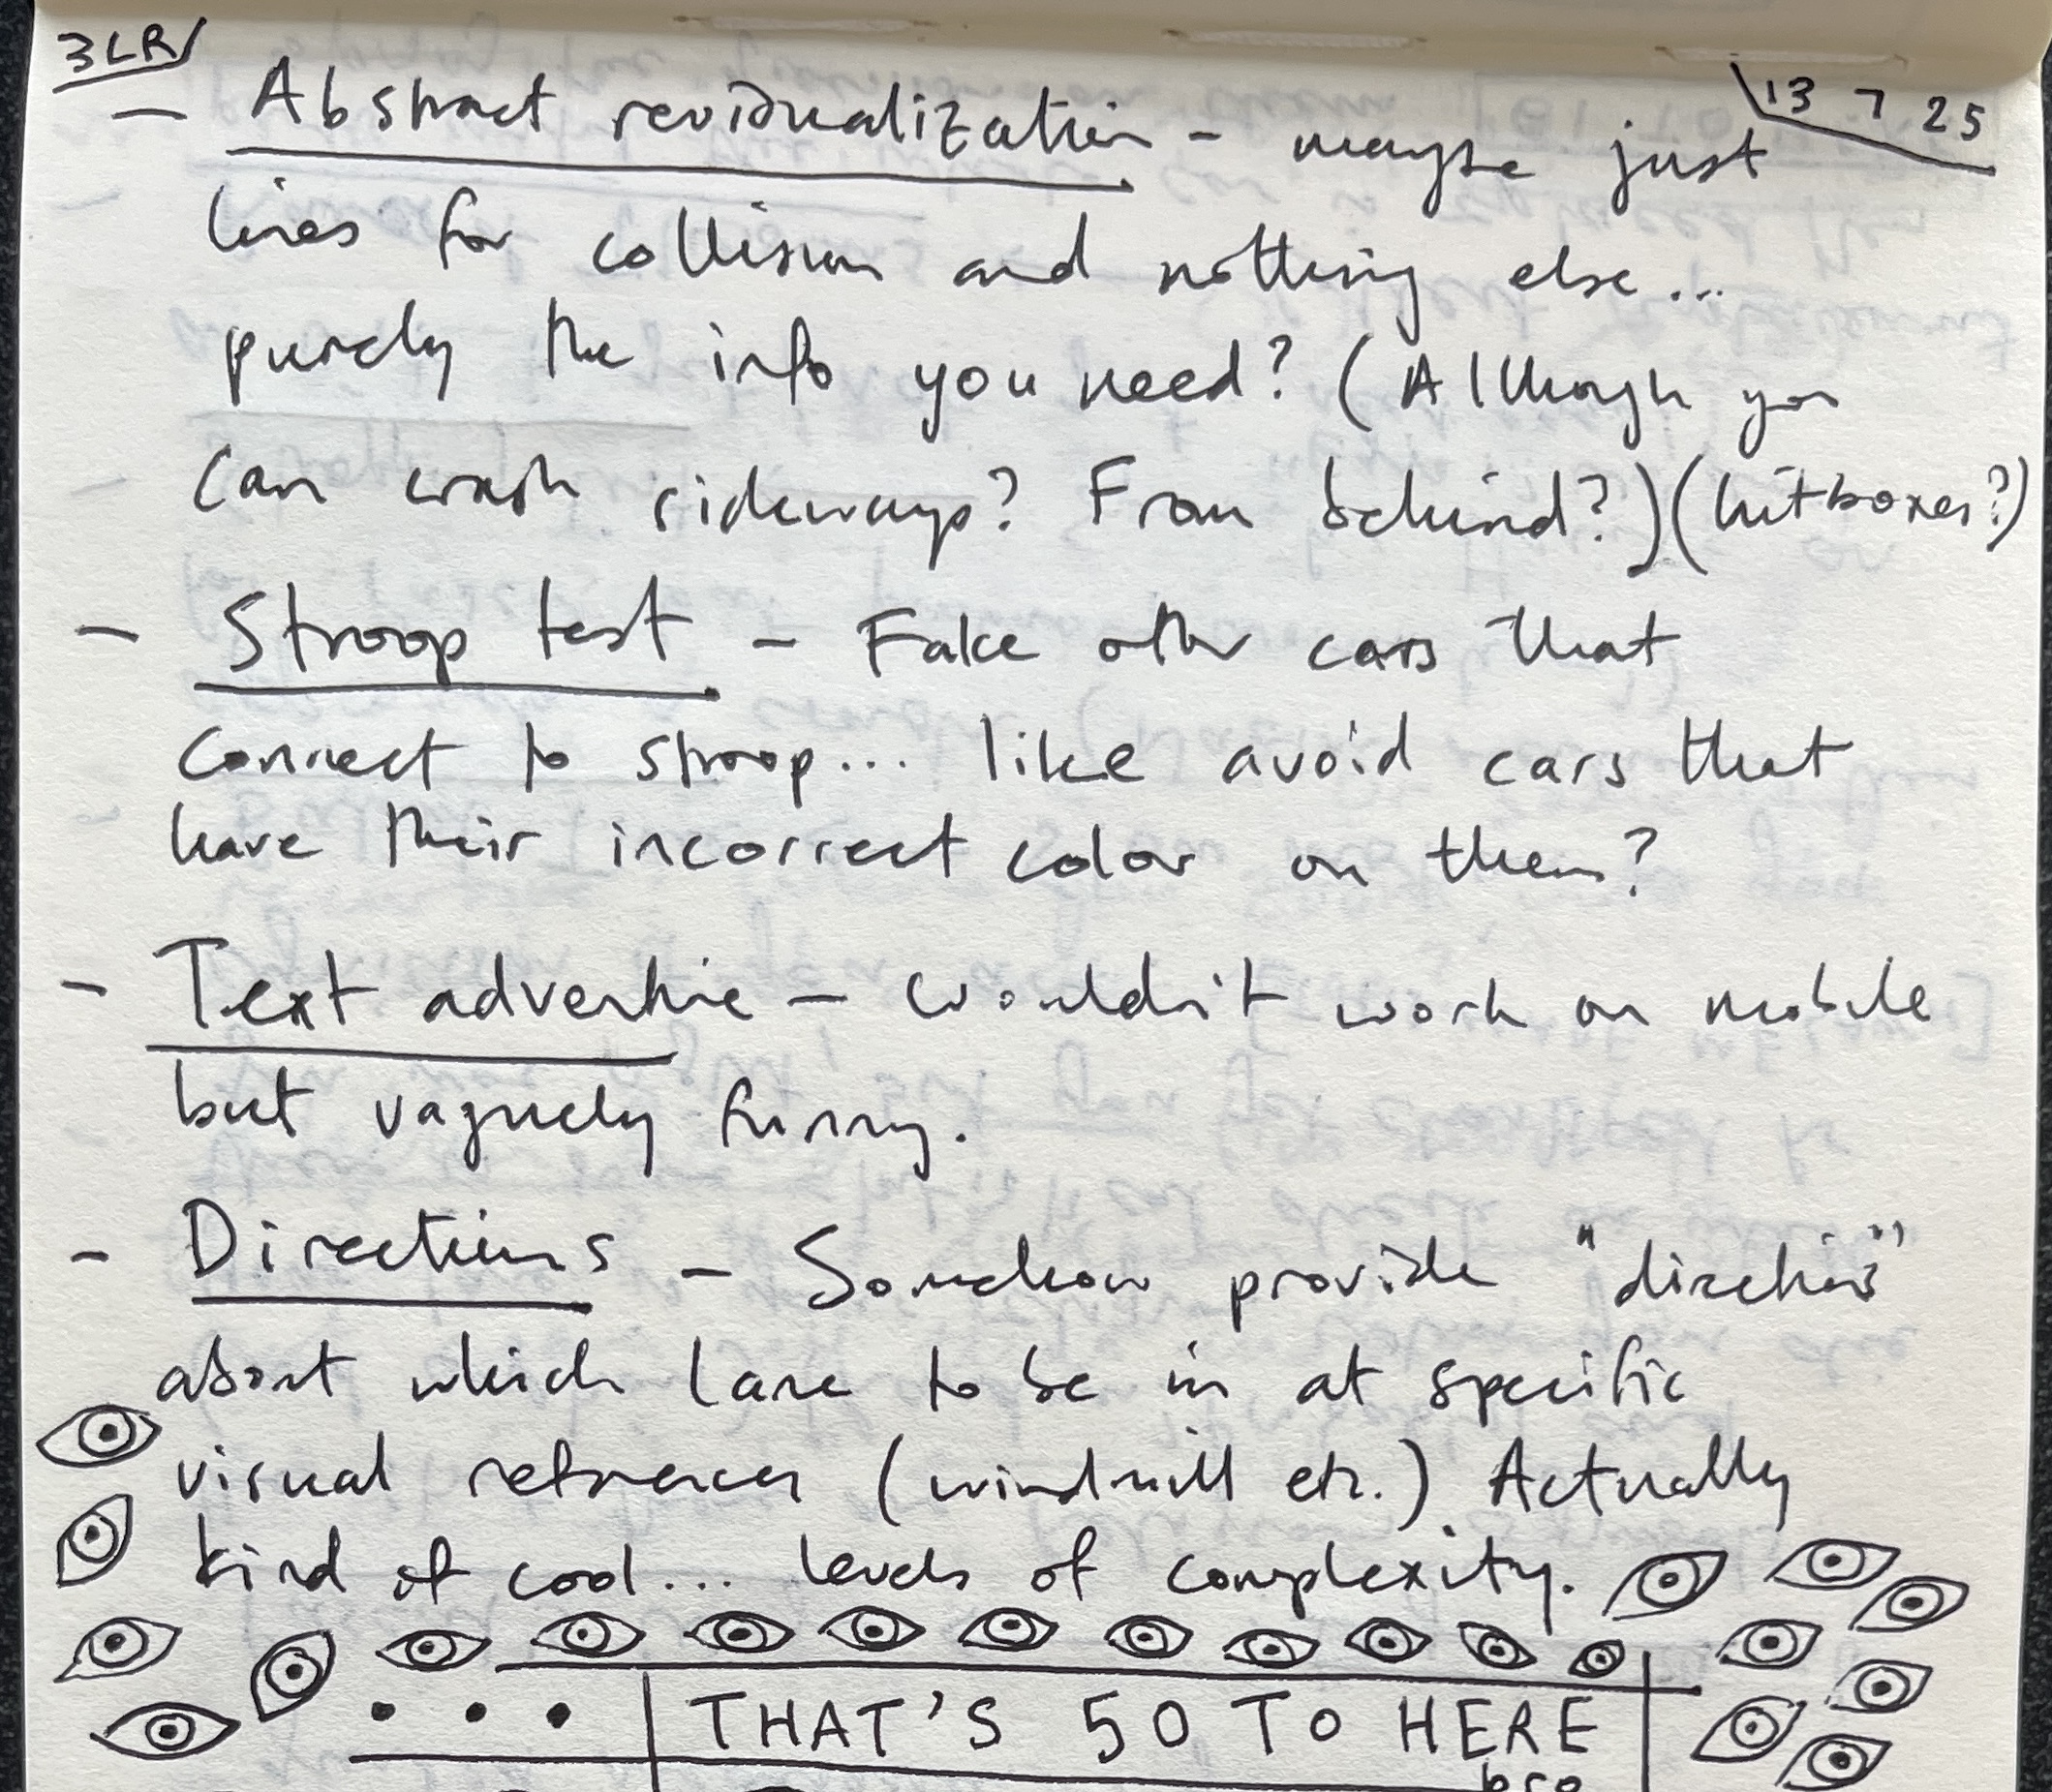 3LR
13 7 25
- Abstract revisualization - maybe just
lines for collision and nothing else...
purely the info you need? (Although you
can crash sideways? From behind?) (hitboxes?)
- Stroop test - Fake other cars that
connect to stroop... like avoid cars that
have their incorrect color on them?
- Text adventure - wouldn't work on mobile
but vaguely funny.
- Directions - Somehow provide "directions"
about which lane to be in at specific
visual references (windmill etc.) Actually
kind of cool... levels of complexity.
... THAT'S 50 TO HERE
bro